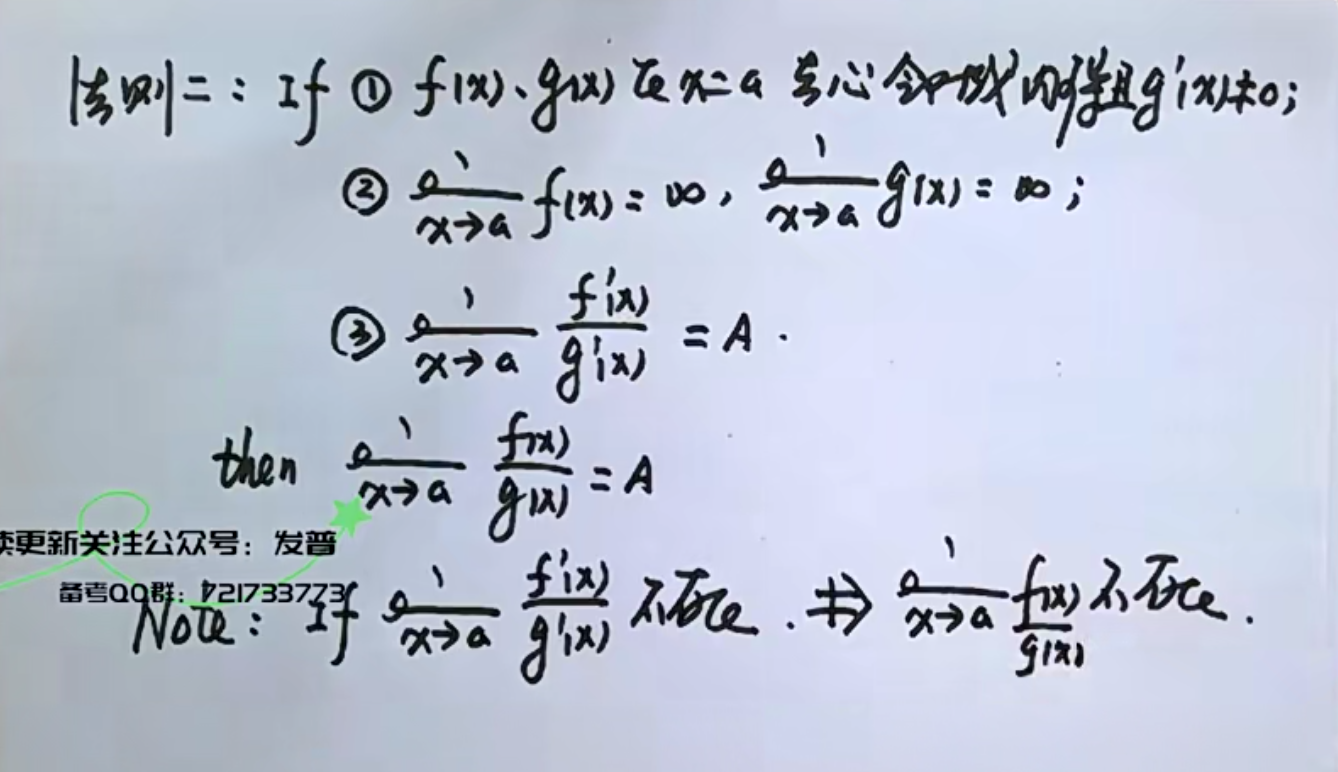 法则二：If ① f(x)、g(x) 在 x=a 去心邻域内可导且 g'(x)≠0；
② lim x→a f(x) = ∞，lim x→a g(x) = ∞；
③ lim x→a f'(x)/g'(x) = A.
then lim x→a f(x)/g(x) = A
续更新关注公众号：发普
备考QQ群：721733773
Note: If lim x→a f'(x)/g'(x) 不存在. ⇏ lim x→a f(x)/g(x) 不存在.